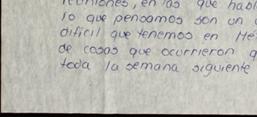 reuniones, en las que habl
lo que pensamos son un
difícil que tenemos en Mé
de cosas que ocurrieron
toda la semana siguiente